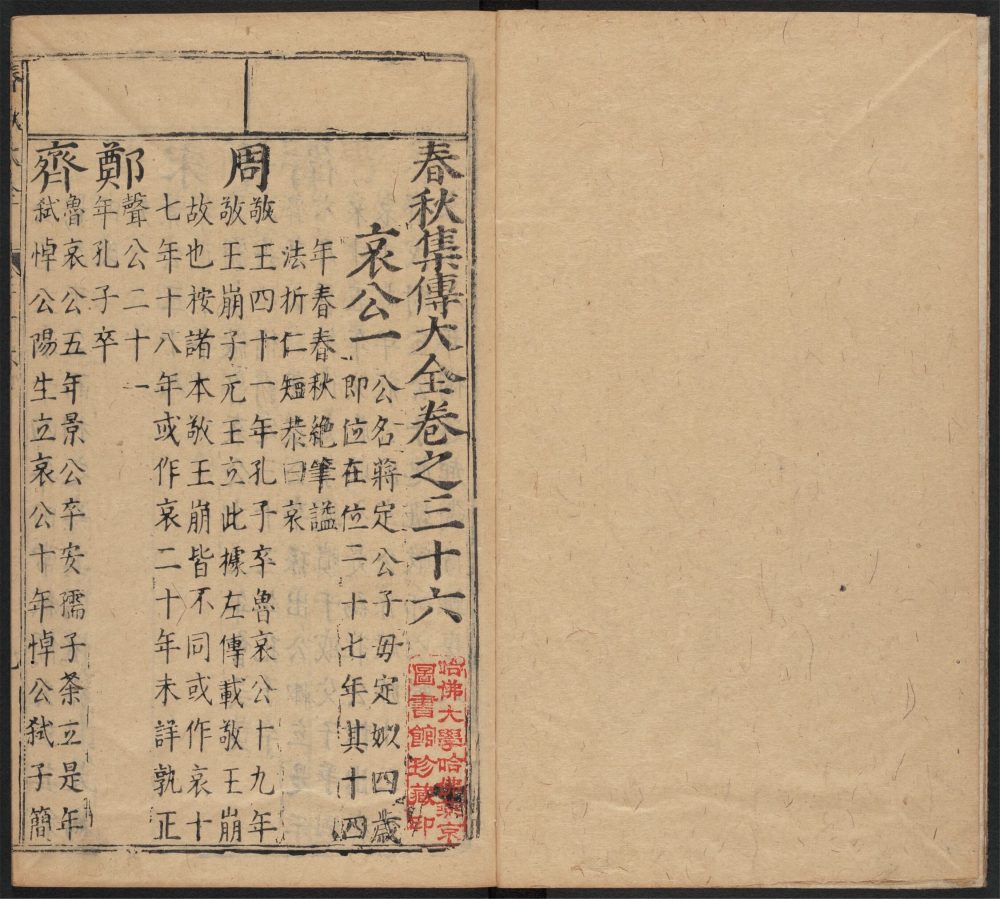 春秋集傳大全卷之三十六
哈佛大學哈佛燕京
圖書館珍藏印
哀公一
公名蔣定公子毋定姒四歲
即位在位二十七年其十四
年春春秋絕筆諡
法折仁短恭曰哀
周
敬王四十一年孔子卒魯哀公十九年
敬王崩子元王立此據左傳載敬王崩
故也桉諸本敬王崩皆不同或作哀十
七年十八年或作哀二十年未詳孰正
鄭
聲公二十一
年孔子卒
齊
魯哀公五年景公卒安孺子荼立是年
弒悼公陽生立哀公十年悼公弒子簡